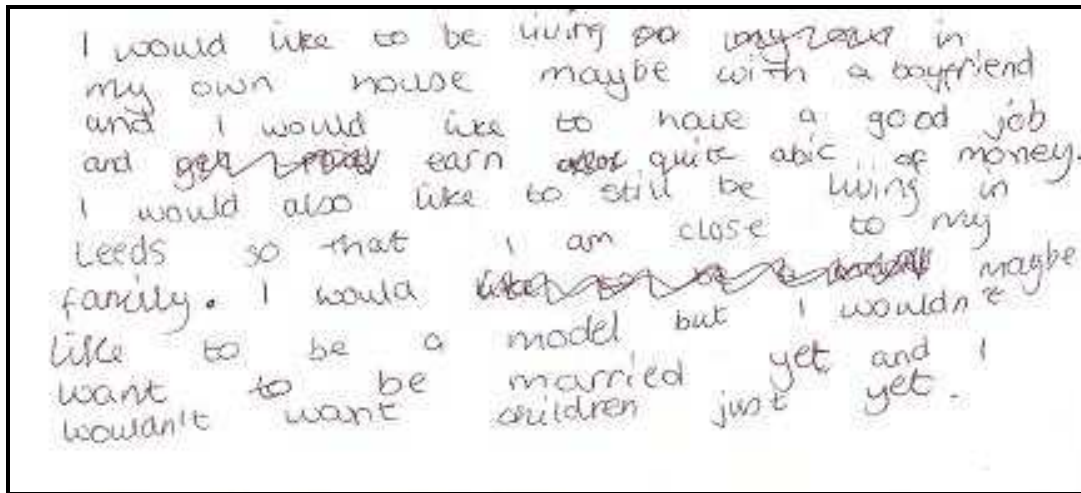 I would like to be living in
my own house maybe with a boyfriend
and I would like to have a good job
and earn quite abit of money.
I would also like to still be living in
Leeds so that I am close to my
family. I would maybe
like to be a model but I wouldn't
want to be married yet and I
wouldn't want children just yet.